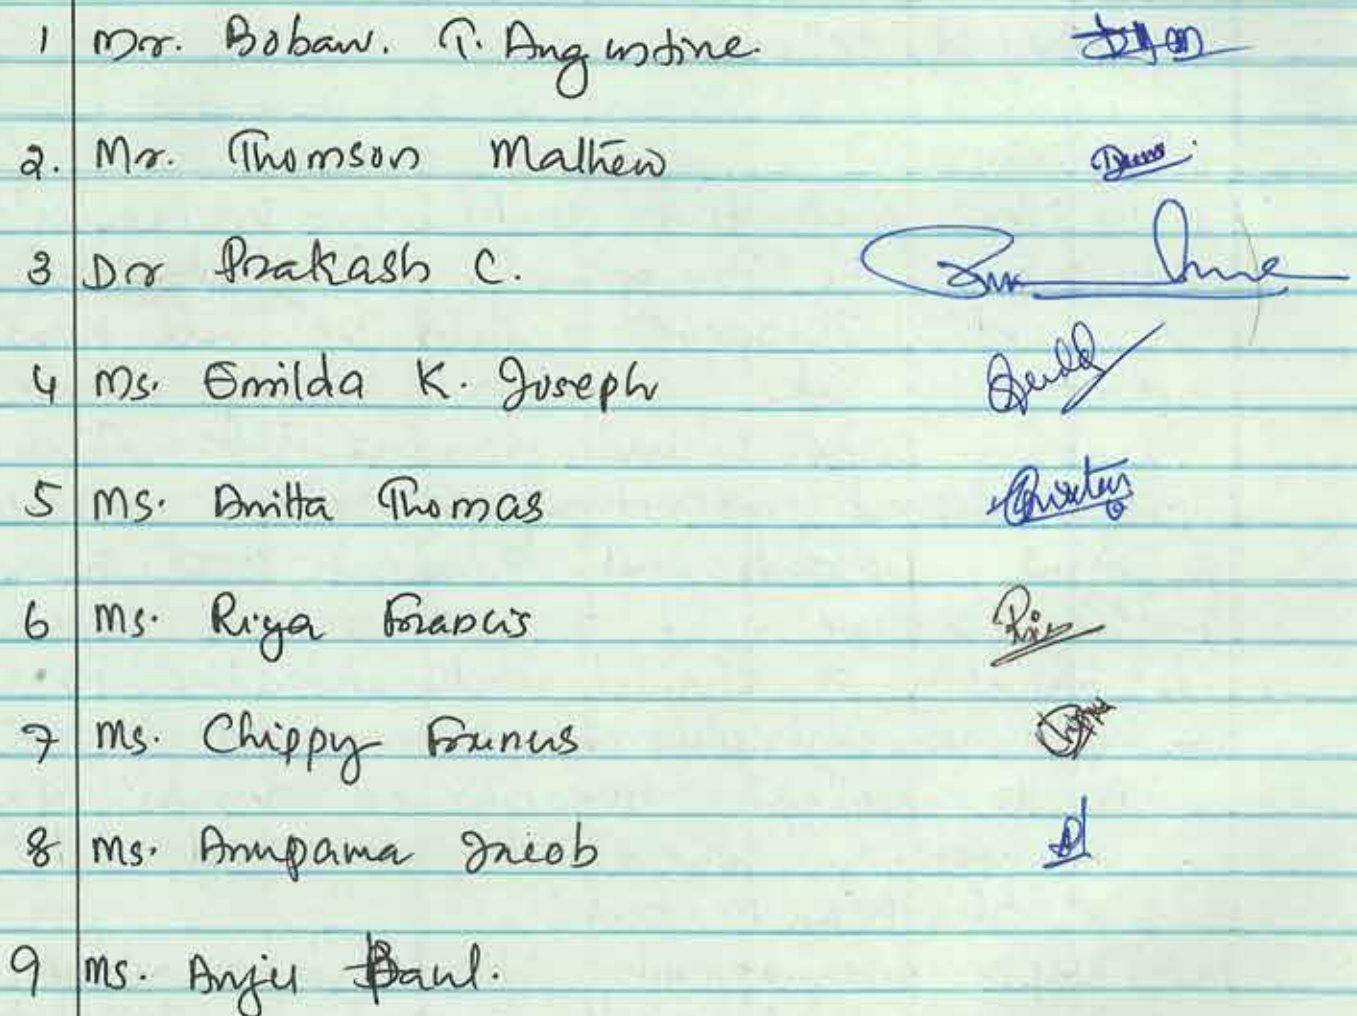 1 Mr. Boban. T. Augustine.
2. Mr. Thomson Mathew
3 Dr Prakash C.
4 Ms. Emilda K. Joseph
5 Ms. Anitta Thomas
6 Ms. Riya Francis
7 Ms. Chippy Francis
8 Ms. Anupama Jacob
9 Ms. Anju Paul.